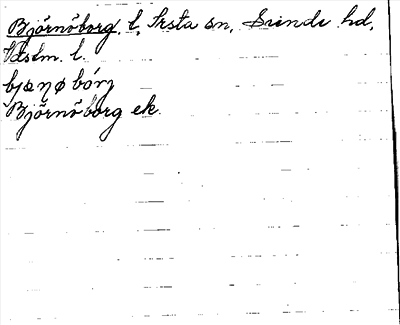 Björnöborg, l, Irsta sn, Siende hd,
Västm. l.
bjɷŋøbórj
Björnöborg ek.